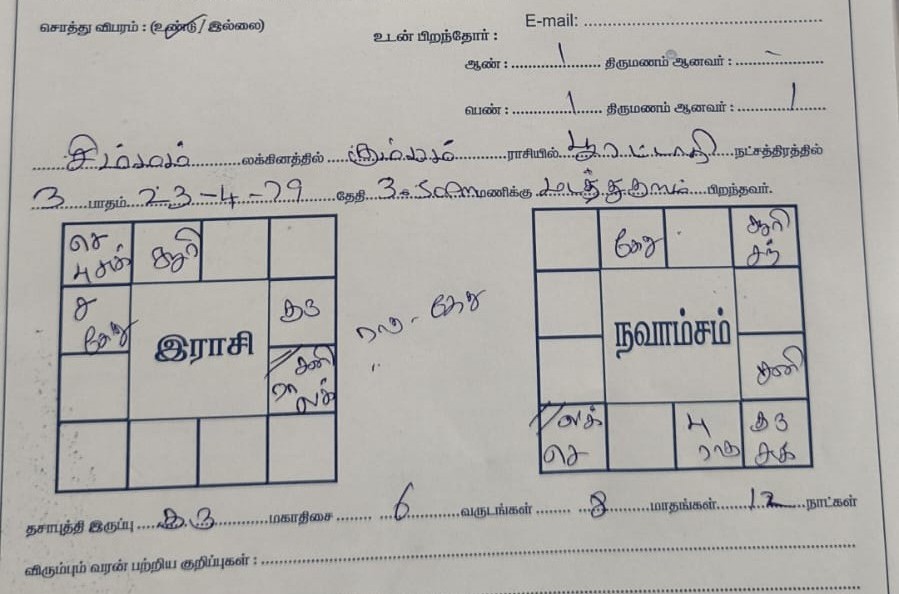 E-mail:
சொத்து விபரம் : (உண்டு / இல்லை)
உடன் பிறந்தோர் :
ஆண் : 1 திருமணம் ஆனவர் : -
பெண் : 1 திருமணம் ஆனவர் : 1
சிம்மம் லக்கினத்தில் கும்பம் ராசியில் பூரட்டாதி நட்சத்திரத்தில்
3 பாதம் 23-4-79 தேதி 3-50 மணிக்கு பிறந்தவர்.
செ சூரி கேது சூரி
பு சுக் சந்
ச குரு
கேது
ராகு - கேது
இராசி நவாம்சம்
சனி சனி
ரா லக்
லக் பு குரு
செ ராகு சுக்
தசாபுத்தி இருப்பு குரு மகாதிசை 6 வருடங்கள் 8 மாதங்கள் 12 நாட்கள்
விரும்பும் வரன் பற்றிய குறிப்புகள் :